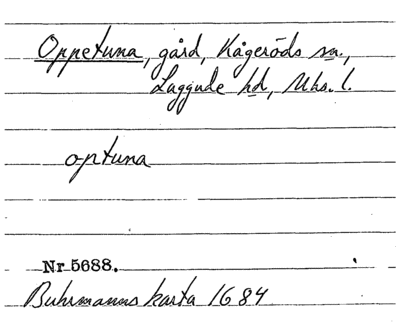 Oppetuna, gård, Kågeröds sn.,
Luggude hd, Mhs. l.
optuna
Nr 5688.
Buhrmanns karta 1684